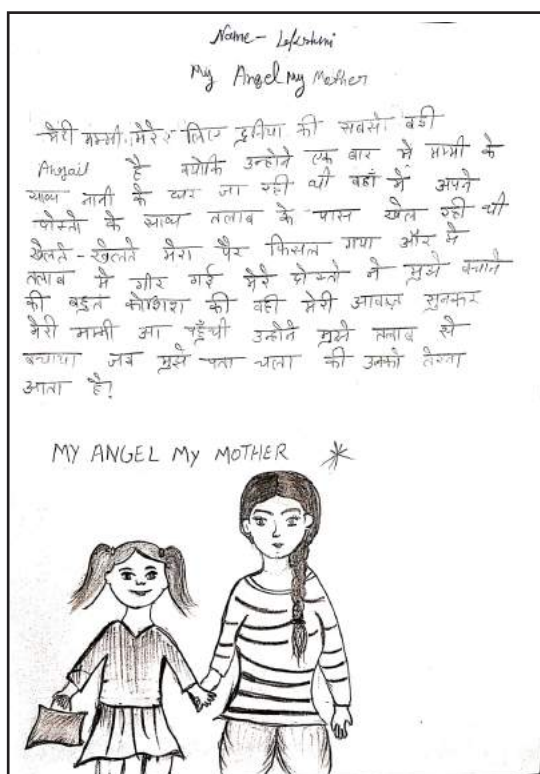 Name - Lekshmi
My Angel My Mother
मेरी मम्मी मेरे लिए दुनीया की सबसे बडी
Angail है क्योकि उन्होने एक बार मे मम्मी के
साथ नानी के घर जा रही थी वहाँ मैं अपने
दोस्तो के साथ तलाब के पास खेल रही थी
खेलते-खेलते मेरा पैर फिसल गया और मे
तलाब मे गीर गई मेरे दोस्तो ने मुझे बचाने
की बहुत कोशिश की वही मेरी आवाज़ सुनकर
मेरी मम्मी आ पहुँची उन्होने मुझे तलाब से
बचाया जब मुझे पता चला की उनको तेरना
आता है?
MY ANGEL MY MOTHER